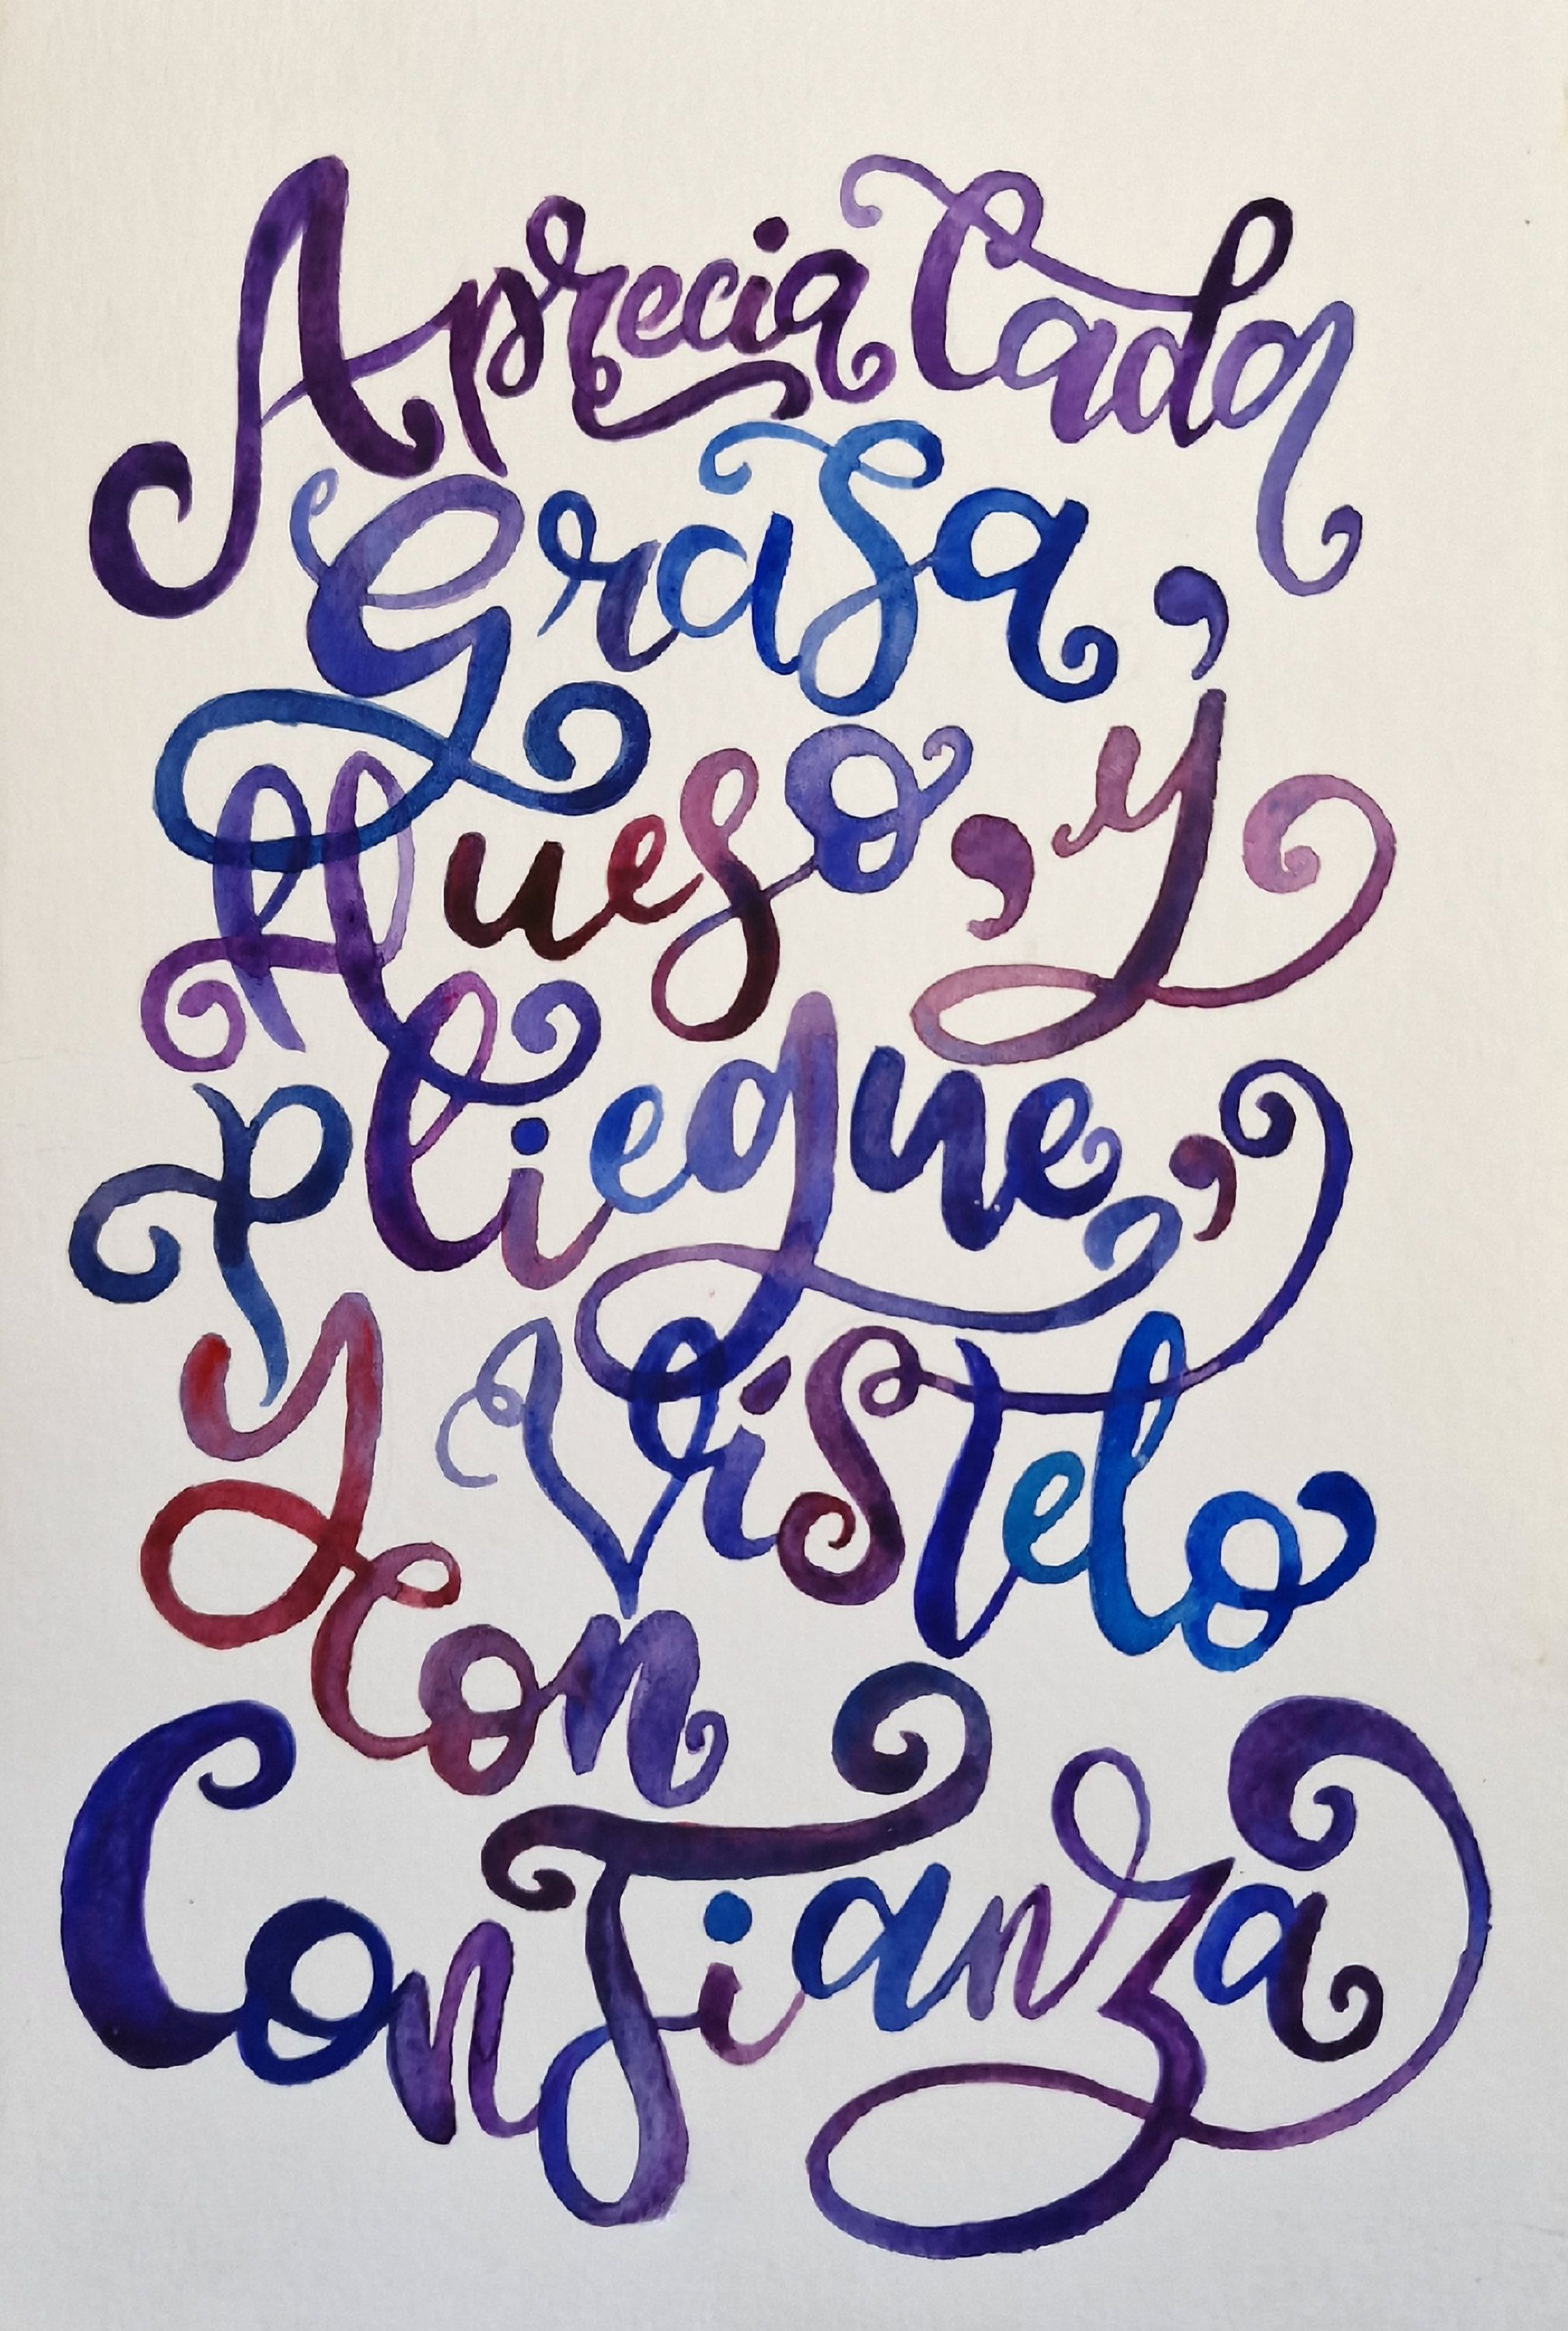 Aprecia Cada
Grasa,
Hueso, y
Pliegue,
y Vistelo
Con
Confianza